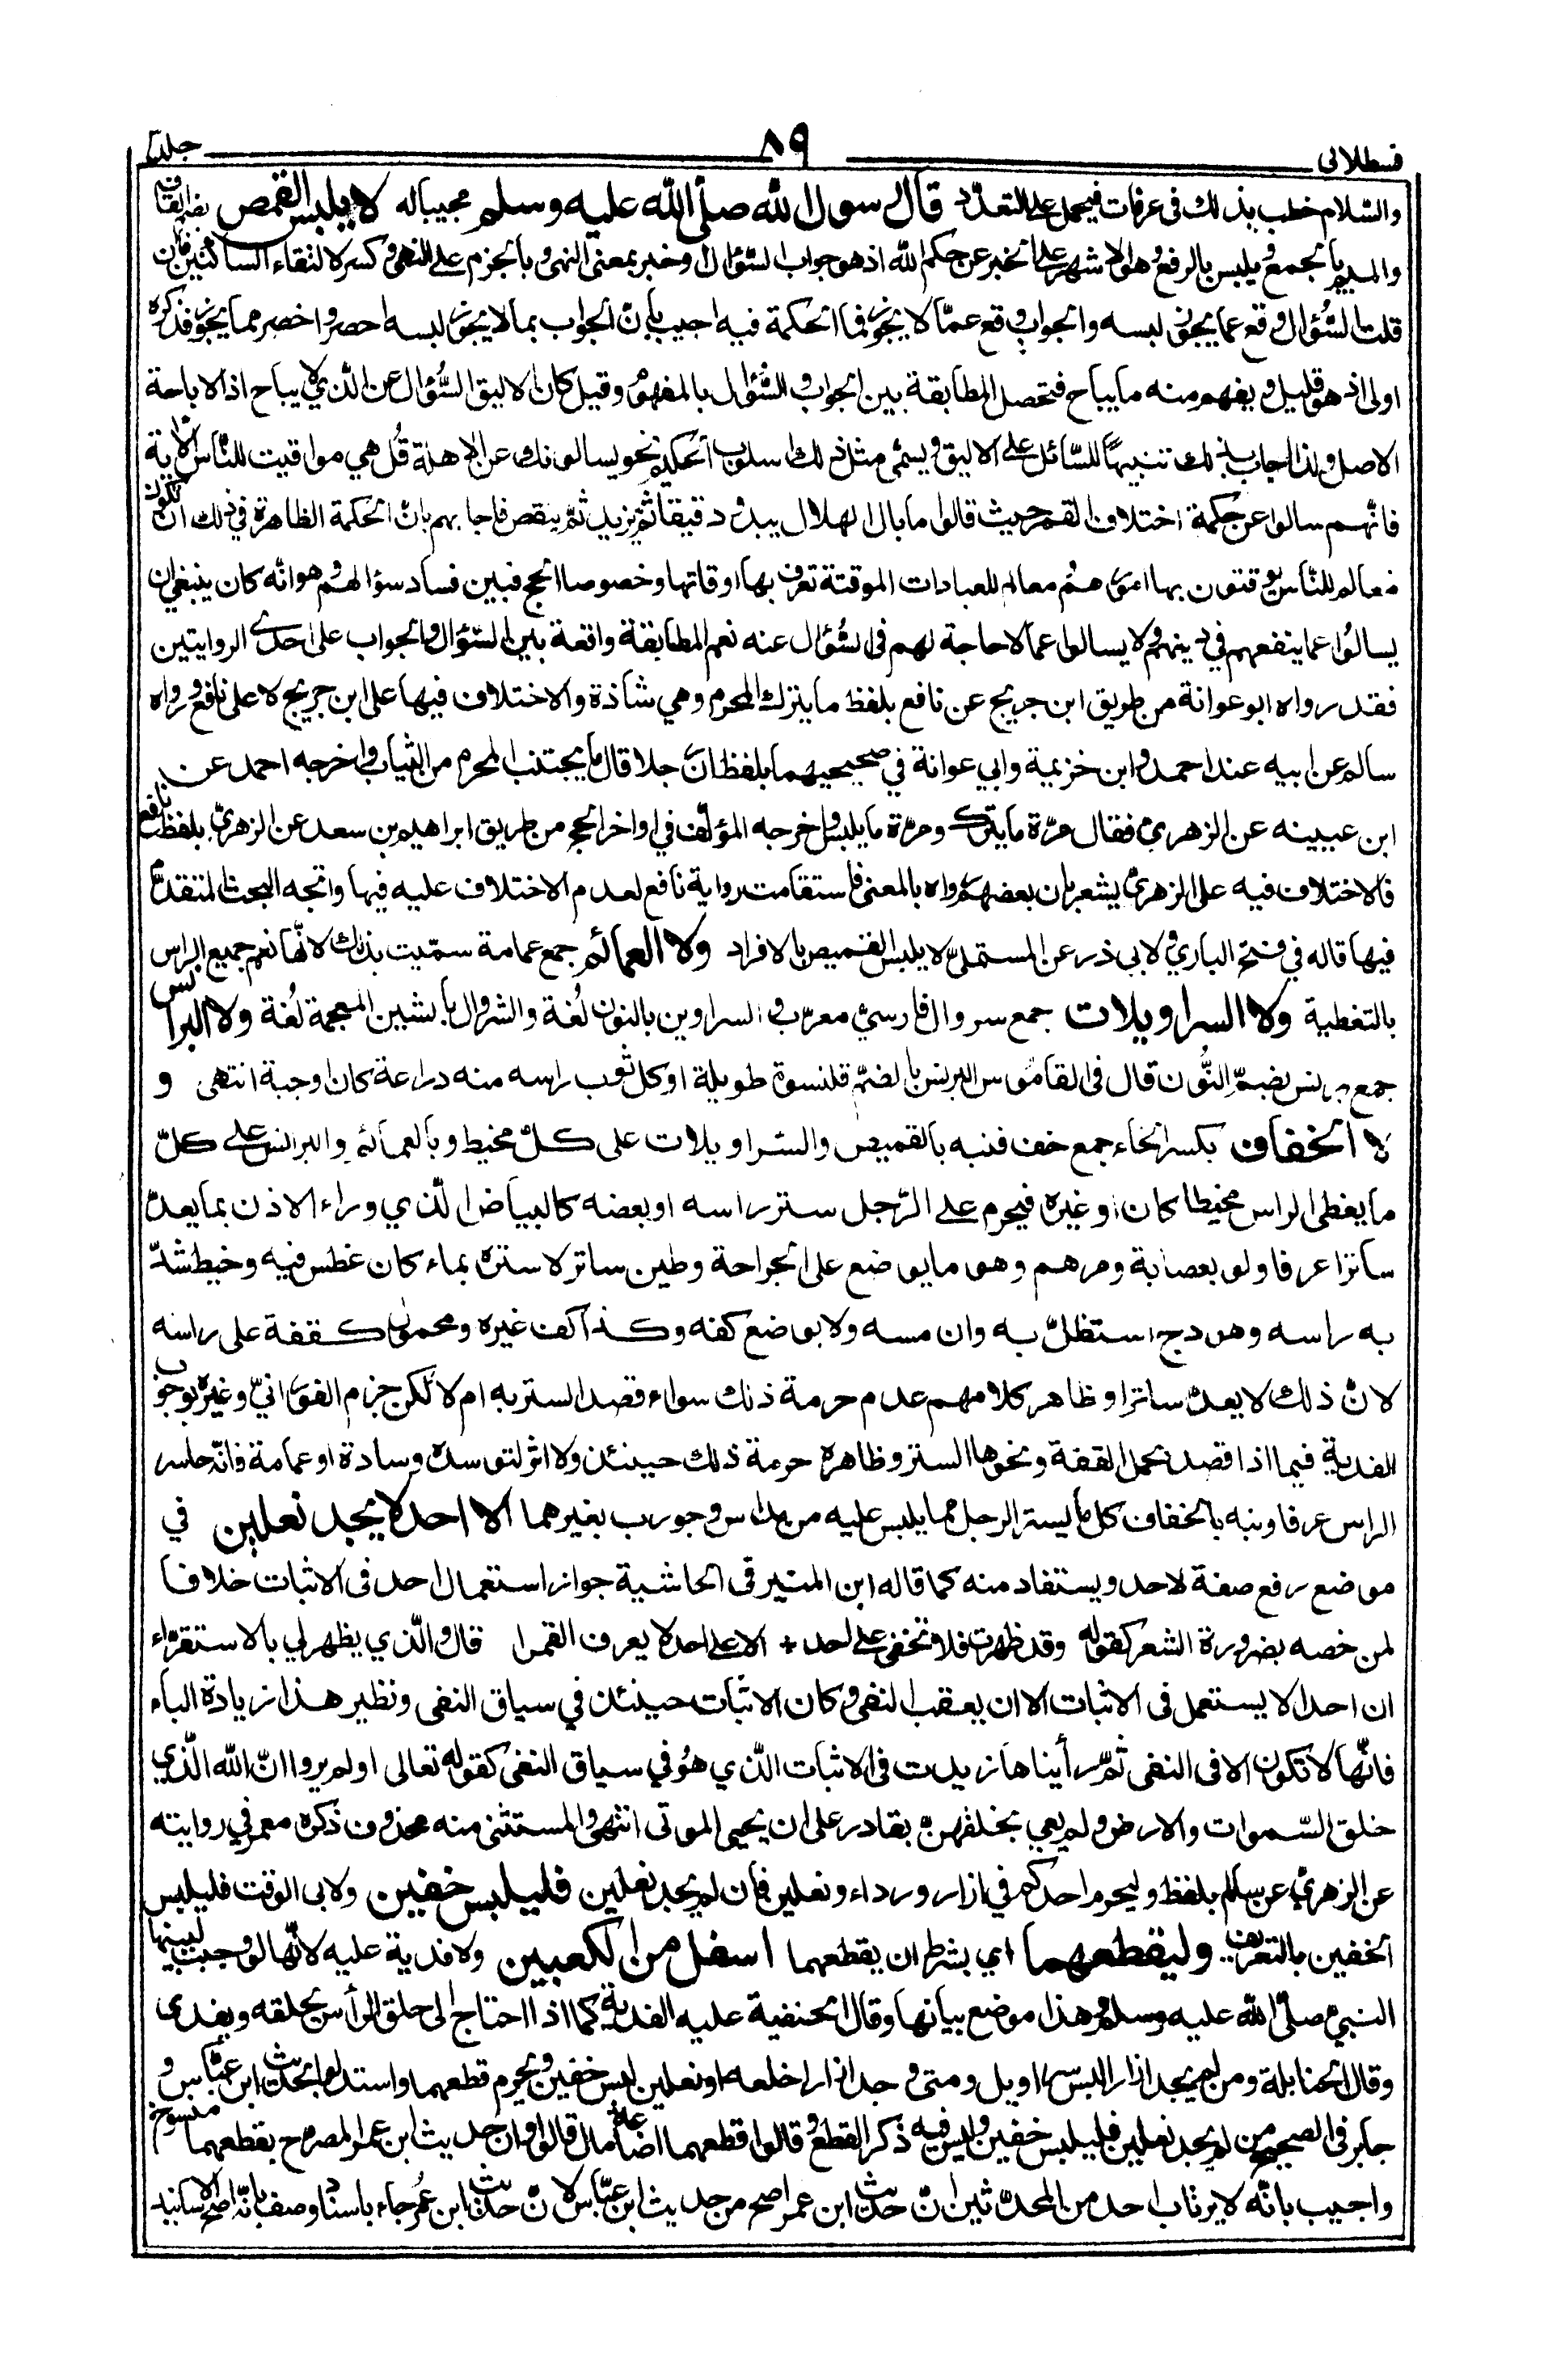 قسطلانی
٨٩
جلد
والسّلام خطب بذلك فی عرفات فیحمل علی التعدّد قال رسول الله صلی الله علیه وسلم مجیبا له لا یلبس القمص بضم القاف
والمیم بالجمع ویلبس بالرفع وهو الاشهر علی الخبر عن حکم الله اذ هو جواب السّؤال او خبر بمعنی النهی وبالجزم علی النهی وکسر لالتقاء الساکنین فان
قلت السّؤال وقع عما یجوز لبسه والجواب وقع عمّا لا یجوز فما الحکمة فیه اجیب بانّ الجواب بما لا یجوز لبسه احصر واخصر مما یجوز فذکره
اولی اذ هو قلیل ویفهم منه ما یباح فتحصل المطابقة بین الجواب والسّؤال بالمفهوم وقیل کان الالیق السّؤال عن الّذی لا یباح اذ الاباحة
الاصل ولذا اجاب بذلك تنبیهًا للسّائل علی الالیق ویسمّی مثل ذلك اسلوب الحکیم نحو یسالونك عن الاهلة قُل هی مواقیت للنّاس الآیة
فانّهم سالوا عن حکمة اختلاف القمر حیث قالوا ما بال الهلال یبدو دقیقا ثمّ یزید ثمّ ینقص فاجابهم بانّ الحکمة الظاهرة فی ذلك ان تکون
معالم للنّاس یوقتون بها امورهم ومعالم للعبادات الموقتة تعرف بها اوقاتها وخصوصا الحج فبین فساد سؤالهم وهو انّه کان ینبغی ان
یسالُوا عما ینفعهم فی دینهم ولا یسالوا عما لا حاجة لهم فی السُّؤال عنه نعم المطابقة واقعة بین السّؤال والجواب علی احدی الروایتین
فقد رواه ابو عوانة من طریق ابن جریج عن نافع بلفظ ما یترك المحرم وهی شاذة والاختلاف فیها علی ابن جریج لا علی نافع ورواه
سالم عن ابیه عند احمد وابن خزیمة وابی عوانة فی صحیحیهما بلفظ ان رجلا قال ما یجتنب المحرم من الثیاب واخرجه احمد عن
ابن عیینه عن الزهریّ فقال مرّة ما یترك ومرّة ما یلبس واخرجه المؤلّف فی اواخر الحج من طریق ابراهیم بن سعد عن الزهریّ بلفظ نافع
فالاختلاف فیه علی الزهریّ یشعر بان بعضهم رواه بالمعنی فاستقامت روایة نافع لعدم الاختلاف علیه فیها واتجه البحث المتقدّم
فیها قاله فی فتح الباری ولابی ذر عن المستملیّ لا یلبس القمیص بالافراد ولا العمائم جمع عمامة سمّیت بذلك لانّها تعم جمیع الراس
بالتغطیة ولا السراویلات جمع سروال فارسیّ معرّب والسراوین بالنون لُغة والشروال بالشین المعجمة لُغة ولا البرانس
جمع برنس بضمّ النّون قال فی القاموس البرنس بالضمّ قلنسوة طویلة او کل ثوب راسه منه دراعة کان او جبة انتهی و
لا الخفاف بکسر الخاء جمع خف فنبه بالقمیص والسّراویلات علی کلّ مخیط وبالعمائم والبرانس علی کلّ
ما یغطی الراس مخیطا کان او غیره فیحرم علی الرّجل ستر راسه او بعضه کالبیاض الّذی وراء الاذن بما یعدّ
ساترا عرفا ولو بعصابة ومرهم وهو ما یوضع علی الجراحة وطین ساتر لا ستره بماء کان غطس فیه وخیط شدّ
به راسه وهودج استظلّ به وان مسه ولا بوضع کفه وکذا کف غیره ومحمول کقفة علی راسه
لانّ ذلك لا یعدّ ساترا وظاهر کلامهم عدم حرمة ذلك سواء قصد الستر به ام لا لکن جزم الفورانیّ وغیره بوجوب
الفدیة فیما اذا قصد بحمل القفة ونحوها الستر وظاهره حرمة ذلك حینئذ ولا اثر لتوسده وسادة او عمامة فانّه حاسر
الراس عرفا ونبه بالخفاف کل ما یستر الرجل مما یلبس علیه من مداس وجورب بغیرهما الا احد لا یجد نعلین فی
موضع رفع صفة لاحد ویستفاد منه کما قاله ابن المنیر فی الحاشیة جواز استعمال احد فی الاثبات خلافا
لمن خصه بضرورة الشعر کقوله وقد ظهرت فلا تخفی علی احد + الا علی احد لا یعرف القمرا قال والّذی یظهر لی بالاستقراء
ان احدا لا یستعمل فی الاثبات الا ان یعقب النفی وکان الاثبات حینئذ فی سیاق النفی ونظیر هذا زیادة الباء
فانّها لا تکون الا فی النفی ثمّ رأیناها زیدت فی الاثبات الّذی هُو فی سیاق النفی کقوله تعالی اولم یروا انّ الله الّذی
خلق السّموات والارض ولم یعی بخلقهنّ بقادر علی ان یحیی الموتی انتهی والمستثنی منه محذوف ذکره معمر فی روایته
عن الزهریّ عن سالم بلفظ ولیحرم احدکم فی ازار ورداء ونعلین فان لم یجد نعلین فلیلبس خفین ولابی الوقت فلیلبس
الخفین بالتعریف ولیقطعهما ای بشرط ان یقطعهما اسفل من الکعبین ولا فدیة علیه لانّها لو وجبت لبینها
النبیّ صلّی الله علیه وسلم وهذا موضع بیانها وقال الحنفیة علیه الفدیة کما اذا احتاج الی حلق الرأس یحلقه ویفدی
وقال الحنابلة ومن لم یجد ازارا لبس سراویل ومتی وجد ازارا خلعه او نعلین لبس خفین ویحرم قطعهما واستدلوا بحدیث ابن عبّاس و
جابر فی الصحیح من لم یجد نعلین فلیلبس خفین ولیس فیه ذکر القطع وقالوا قطعهما اضاعة مال قالوا وان حدیث ابن عمر المصرح بقطعهما منسوخ
واجیب بانّه لا یرتاب احد من المحدّثین انّ حدیث ابن عمر اصح من حدیث ابن عبّاس لانّ حدیث ابن عُمر جاء باسناد وصف بانّه اصح الاسانید